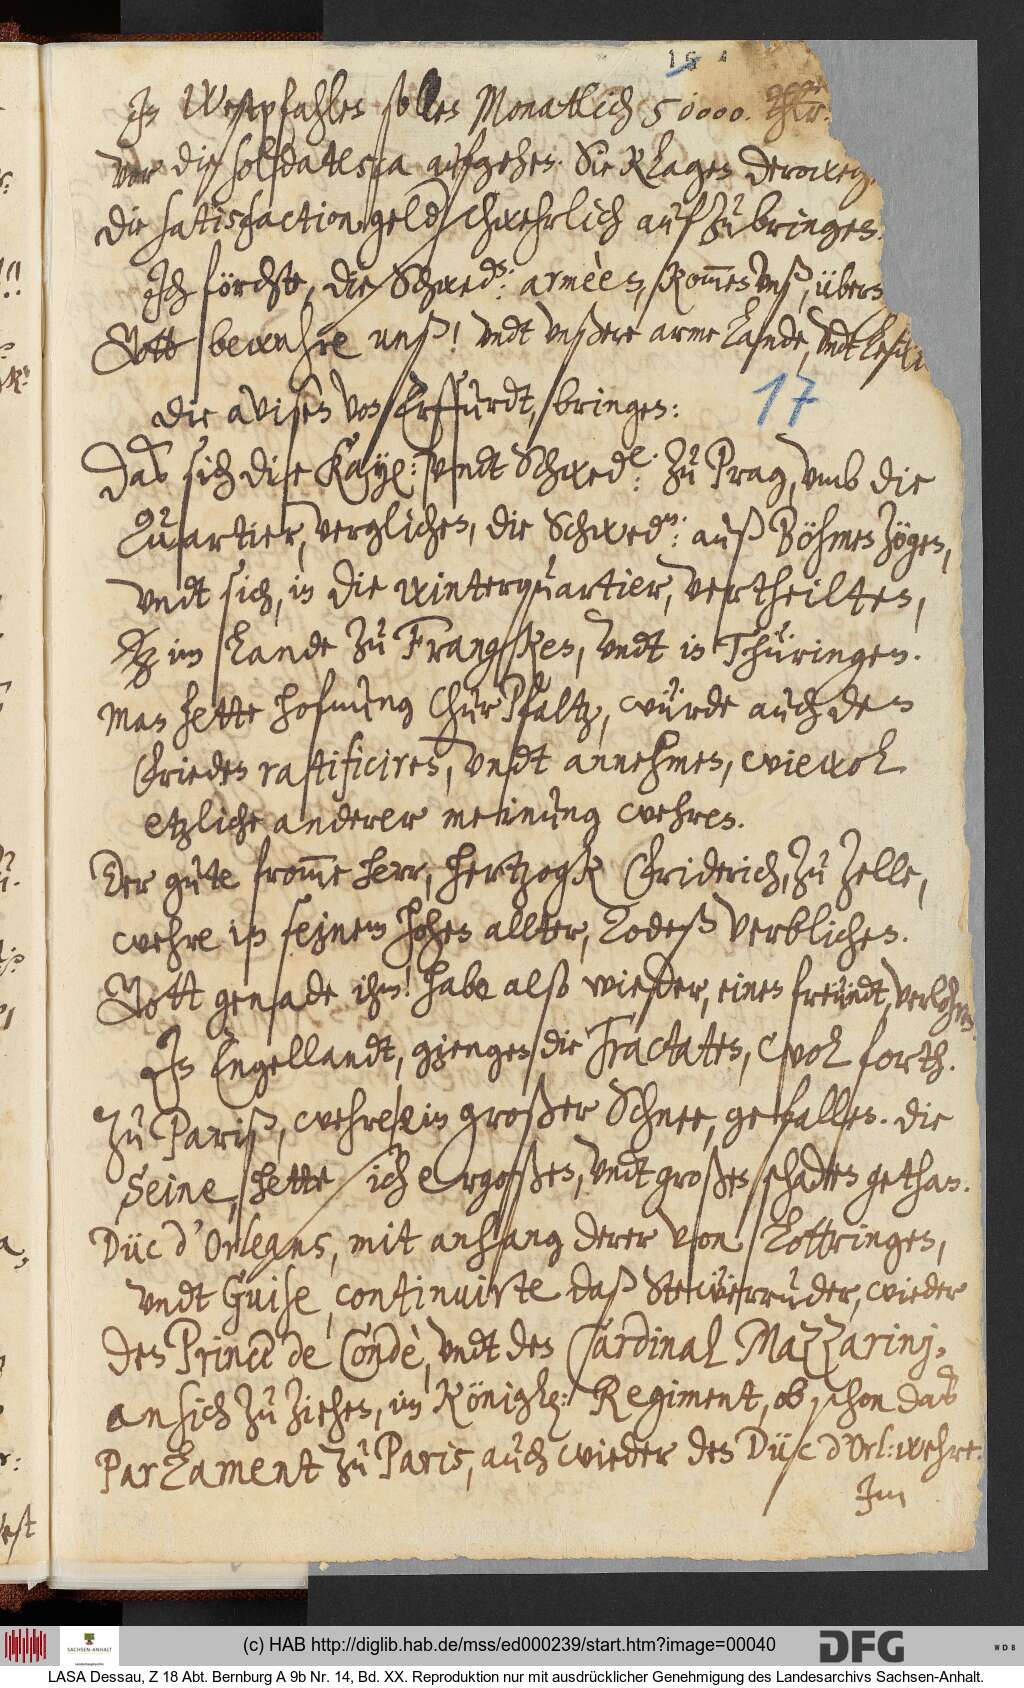 15
In Westpfahlen sollen Monatlich 50000. Thlr:
vor die soldatesca aufgehen. Sie klagen deroweg,
die satisfactiongelder schwehrlich aufzubringen.
Ich förchte, die Schwed: armèen, kommen unß, übern
Gott bewahre unß! undt unßere arme Lande, undt
17
die avisen von Erffurdt, bringen:
Daß sich die Kayl: undt Schwed: zu Prag, umb die
Quartier, verglichen, die Schwed: auß Böhmen zögen,
undt sich, in die winterquartier, vertheilten,
im Lande zu Francken, undt in Thüringen.
man hette hofnung Chur Pfaltz, würde auch den
frieden ratificiren, undt annehmen, wiewol
etzliche anderer meinung wehren.
Der gute fromme herr, hertzogk Friderich, zu Zelle,
wehre in seinem hohen allter, Todeß verblichen.
Gott genade ihm! habe also wieder, einen freundt, verlohren.
In Engellandt, giengen die Tractaten, wol forth.
Zu Pariß, wehre ein großer Schnee, gefallen. die
Seine, hette sich ergoßen, undt großen schaden gethan.
Duc d'Orleans, mit anhang derer von Lottringen,
undt Guise, continuirte daß Steuerruder, wieder
den Prince de Condè, undt den Cardinal Mazzarinj,
an sich zu ziehen, im Königl: Regiment, ob schon daß
Parlament zu Paris, auch wieder den Duc d'Orl: wehre.
Im
(c) HAB http://diglib.hab.de/mss/ed000239/start.htm?image=00040
SACHSEN-ANHALT
DFG
WDB
LASA Dessau, Z 18 Abt. Bernburg A 9b Nr. 14, Bd. XX. Reproduktion nur mit ausdrücklicher Genehmigung des Landesarchivs Sachsen-Anhalt.